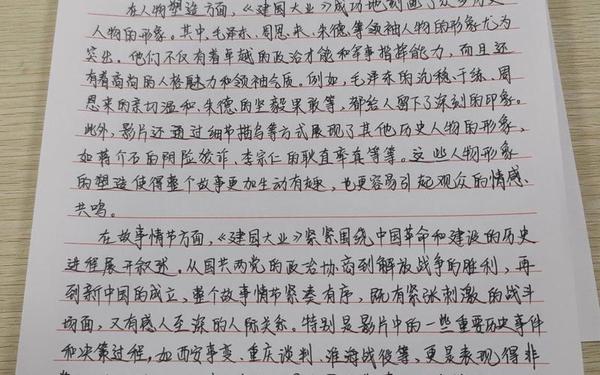 在人物塑造方面，《建国大业》成功地刻画了众多历史
人物的形象。其中，毛泽东、周恩来、朱德等领袖人物的形象尤为
突出。他们不仅有着卓越的政治才能和军事指挥能力，而且还
有着高尚的人格魅力和领袖气质。例如，毛泽东的沉稳干练、周
恩来的亲切温和、朱德的坚毅果敢等，都给人留下了深刻的印象。
此外，影片还通过细节描写等方式展现了其他历史人物的形象，
如蒋介石的阴险狡诈、李宗仁的耿直率真等等。这些人物形象
的塑造使得整个故事更加生动有趣，也更容易引起观众的情感
共鸣。
在故事情节方面，《建国大业》紧紧围绕中国革命和建设的历史
进程展开叙述。从国共两党的政治协商到解放战争的胜利，再
到新中国的成立，整个故事情节紧凑有序，既有紧张刺激的战斗
场面，又有感人至深的人际关系。特别是影片中的一些重要历史事件
和决策过程，如西安事变、重庆谈判、淮海战役等，更是表现得非